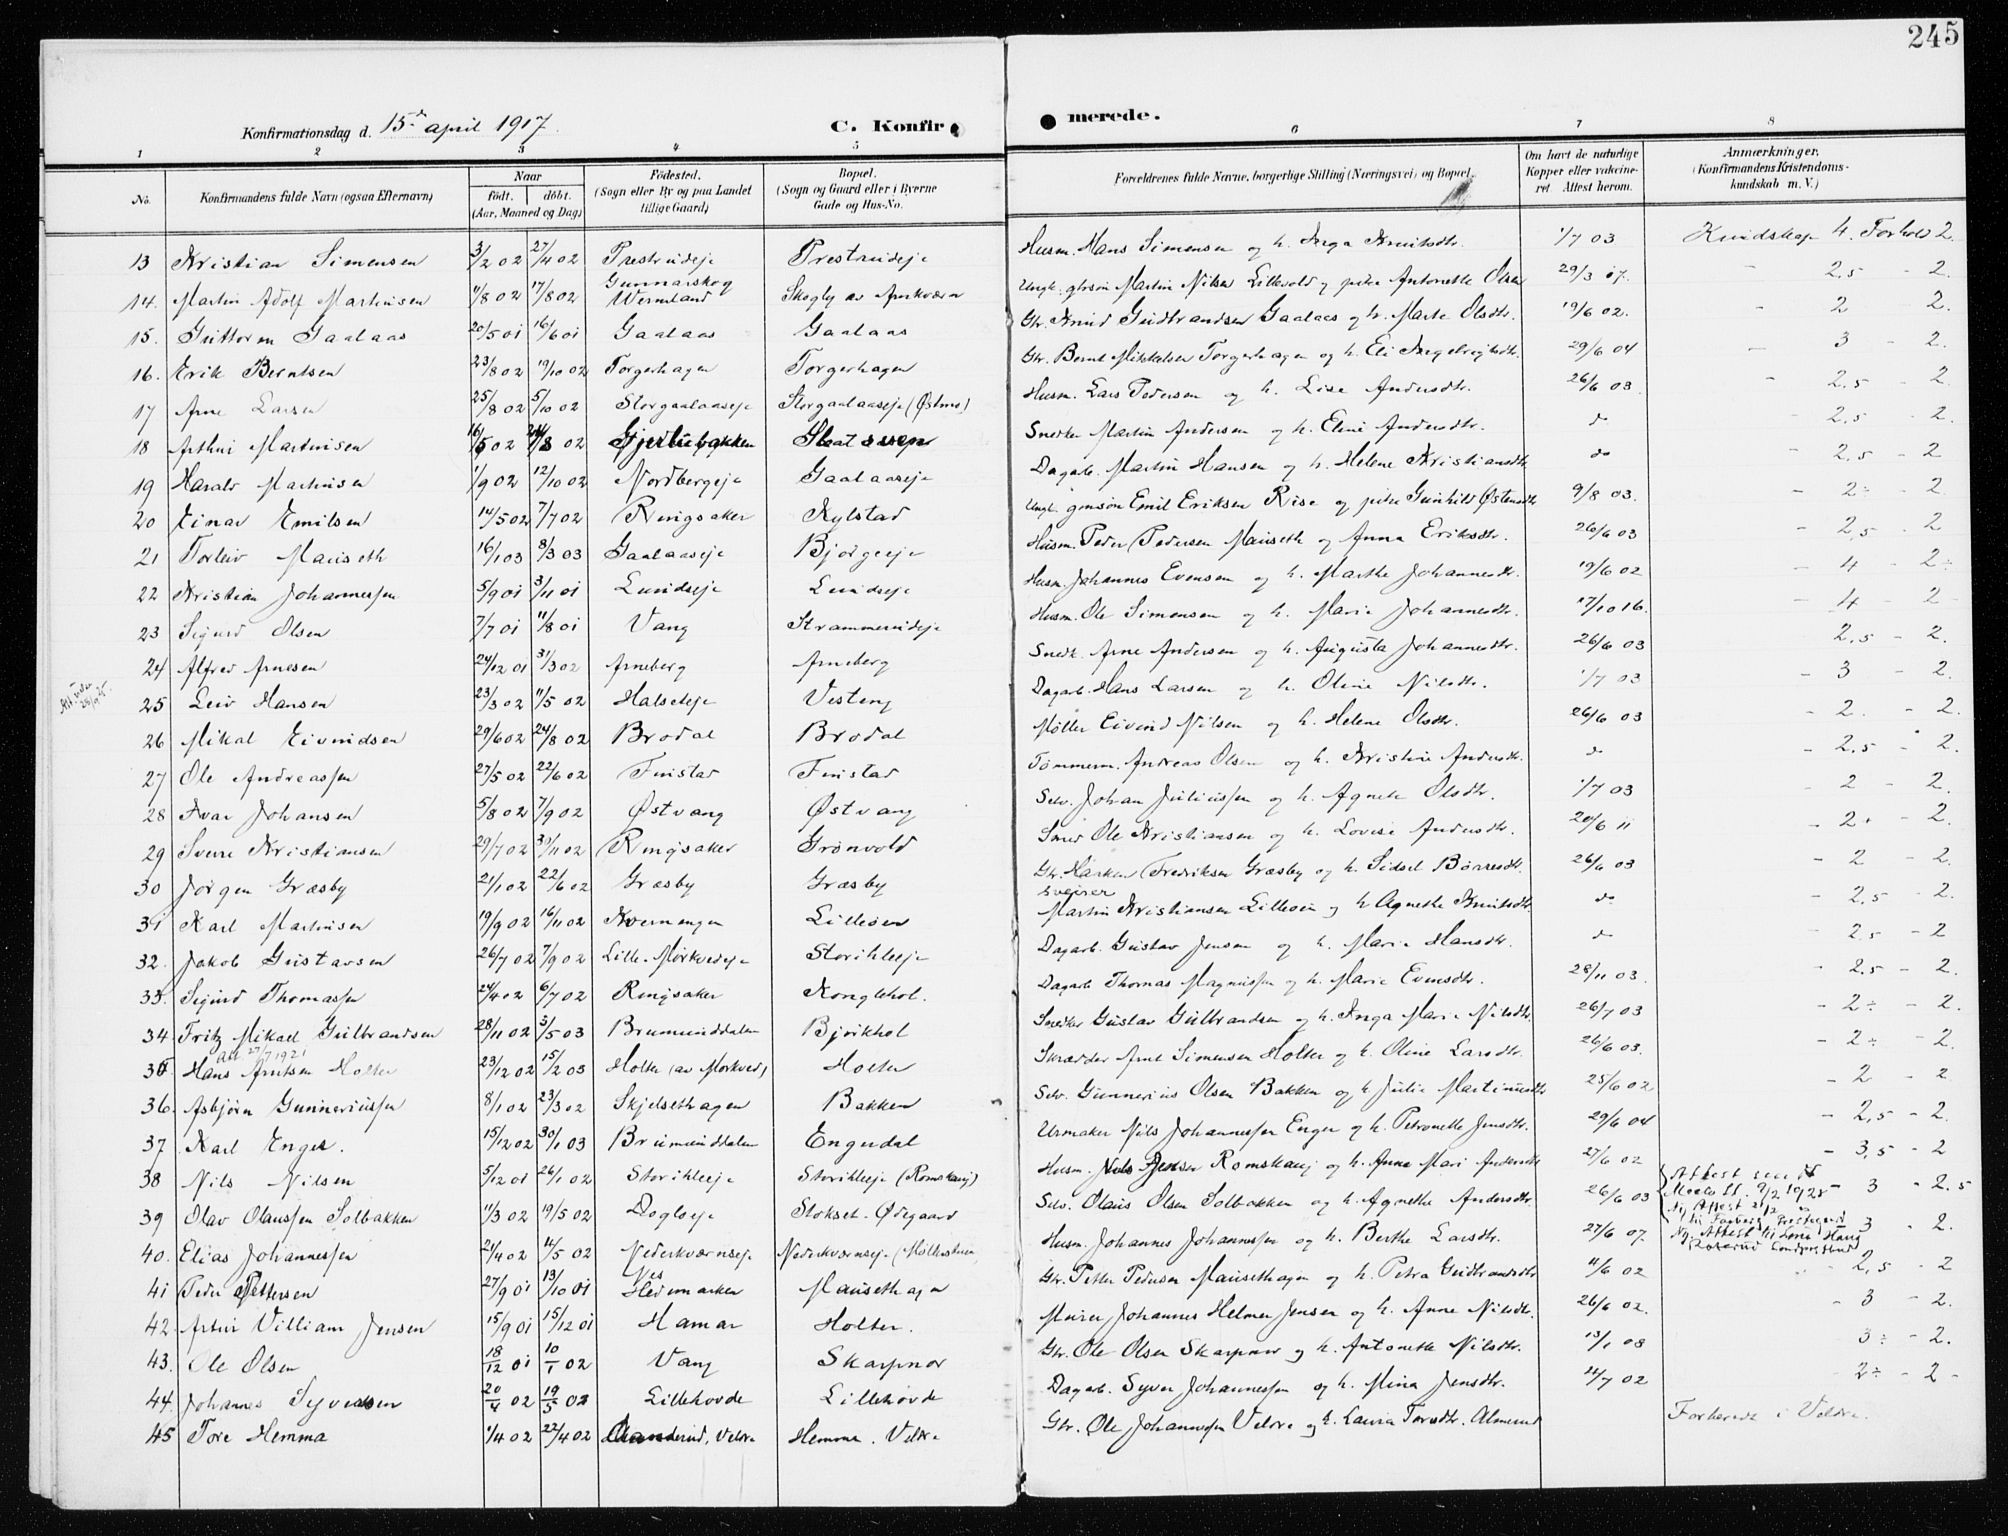 245
Konfirmationsdag d. 15de april 1917
C. Konfirmerede.
1 2 3 4 5 6 7 8
No. Konfirmandens fulde Navn (ogsaa Efternavn) Naar født. døbt. (Aar, Maaned og Dag) Fødested. (Sogn eller By og paa Landet tillige Gaard) Bopæl. (Sogn og Gaard eller i Byerne Gade og Hus-No. Forældrenes fulde Navne, borgerlige Stilling (Næringsvei) og Bopæl. Om havt de naturlige Kopper eller vakcineret. Attest herom. Anmærkninger. (Konfirmandens Kristendomskundskab m. V.)
13 Kristian Simensen 3/2 02 27/4 02 Prestrudeje Prestrudeje Husm. Hans Simensen og h. Inga Knutsdtr. 1/7 03 Kundskap 4. Forhold 2.
14. Martin Adolf Martinsen 11/8 02 17/8 02 Gunnarskog Wermland Skogly av Ungk. gbrsøn Martin Nilsen Lillevold og pike Antonette Olsen 29/3 17. - 2,5 - 2.
15. Guttorm Gaalaas 20/5 01 16/6 01 Gaalaas Gaalaas Gbr. Knud Gudbrandsen Gaalaas og h. Marte Olsdtr. 19/6 02. - 2 2.
16. Erik Berntsen 23/8 02 19/10 02 Torgerhagen Torgerhagen Gbr. Bernt Mikkelsen Torgerhagen og h. Eli Ingebrigtsdtr. 29/6 04 - 3 - 2.
17 Arne Larsen 25/8 02 5/10 02 Storgaalaaseje Storgaalaaseje (Østmo) Husm. Lars Pedersen og h. Lise Andersdtr. 26/6 03 - 2,5 - 2
18 Arthur Martinsen 16/5 02 8 02 Gjerlubakken Slaatsveen Snedker Martin Andersen og h. Eline Andersdtr. do - 2,5 - 2.
19 Harald Martinsen 1/9 02 12/10 02 Nordbergeje Gaalaaseje Dagarb. Martin Hansen og h. Helene Kristiansdtr. do - 2,5 - 2
20 Einar Emilsen 14/5 02 7/7 02 Ringsaker Kylstad Ungk. gmsøn Emil Eriksen Rise og pike Gunhild Østensdtr. 9/8 03. - 2÷ - 2.
21 Torleiv Mauseth 16/1 03 8/3 03 Gaalaaseje Bjørgeeje Husm. Peder Pedersen Mauseth og Anna Eriksdtr. 26/6 03 - 2,5 - 2
22 Kristian Johannessen 5/9 01 3/11 01 Lundseje Lundseje Husm. Johannes Evensen og h. Marthe Johannesdtr. 19/6 02 - 4 - 2÷
23 Sigurd Olsen 7/7 01 11/8 01 Vang Strammerudeje Husm. Ole Simensen og h. Marie Johannesdtr. 17/10 16. - 4 - 2
24 Alfred Arnesen 24/12 01 31/3 02 Arneberg Arneberg Snedk. Arne Andersen og h. Augusta Johannesdtr. 26/6 03 2,5 - 2.
25 Leiv Hansen 23/3 02 11/5 02 Halseteje Vesteng Dagarb. Hans Larsen og h. Oline Nilsdtr. 1/7 03 - 3 - 2.
26 Mikal Eivindsen 29/6 02 24/8 02 Brodal Brodal Møller Eivind Nilsen og h. Helene Olsdtr. 26/6 03 - 2. - 2.
27 Ole Andreassen 27/5 02 22/6 02 Finstad Finstad Tømmerm. Andreas Olsen og h. Kristine Andersdtr. do - 2,5 - 2.
28 Ivar Johansen 5/8 02 7/9 02 Østvang Østvang Selv. Johan Juliussen og h. Agnete Olsdtr. 1/7 03 - 2 - 2.
29 Sverre Kristiansen 29/7 02 30/11 02 Ringsaker Grønvold Smed Ole Kristiansen og h. Lovise Andersdtr. 20/6 11 - 2÷ - 2.
30 Jørgen Græsby 21/1 02 22/6 02 Græsby Græsby Gbr. Haaken Fredriksen Græsby og h. Sidsel Børresdtr. 26/6 03 - 2 - 2.
31 Karl Martinsen 19/9 02 16/11 02 Kvernengen Lilleøen Sveiser Martin Kristiansen Lilleøen og h Agnethe Knutsdtr. do - 2,5 - 2.
32. Jakob Gustavsen 26/7 02 7/9 02 Lille-Mørkvedeje Storihleeje Dagarb. Gustav Jensen og h. Marie Hansdtr. do - 2,5 - 2
33. Sigurd Thomassen 24/4 02 6/7 02 Ringsaker Konglehol. Dagarb Thomas Magnussen og h. Marie Evensdtr. 28/11 03. - 2,5 - 2.
34 Fritz Mikael Gulbrandsen 28/11 02 3/5 03 Brumunddalen Bjørkhol Snedker Gustav Gulbrandsen og h. Inga Marie Nilsdtr. 26/7 03 - 2÷ - 2.
35 Hans Arntsen Holter Att. 27/7 1921 23/12 02 15/2 03 Holter (av Mørkved) Holter Skrædder Arnt Simensen Holter og h. Oline Larsdtr. 26/6 03. - 2÷ - 2.
36. Asbjørn Gunneriussen 8/1 02 23/3 02 Skjelsethagen Bakken Selv. Gunnerius Olsen Bakken og h. Julie Martinusdtr 25/6 02 - 2 - 2
37 Karl Enger. 15/12 02 30/1 03 Brumunddalen Engerdal Urmaker Nils Johannessen Enger og h. Petronelle Jensdtr. 29/6 04 - 2,5 - 2.
38 Nils Nilsen 5/12 01 26/1 02 Storihleeje Storihleeje (Romskaug) Husm. Nils Jensen Romskaug og h. Anne Mari Andersdtr 27/6 02 - 3,5 - 2
39 Olav Olaussen Solbakken 11/3 02 19/5 02 Dogloeje Stokset-Ødegaard Selv. Olaus Olsen Solbakken og h. Agnethe Andersdtr. 26/6 03 Attest 9/2 1925 - 3 - 2.5
40. Elias Johannessen 24/4 02 4/5 02 Nederkværnseje Nederkværnseje Husm. Johannes Johannessen og h. Berthe Larsdtr. 27/6 07. 3 - 2.
41 Peder Pettersen 27/9 01 13/10 01 Nes Hedemarken Mausethagen Gbr. Petter Pedersen Mausethagen og h. Petra Gudbrandsdtr 11/6 02 - 2,5 - 2
42. Artur Villiam Jensen 15/9 01 15/12 01 Hamar Holter. Murer Johannes Helmer Jensen og h. Anne Nilsdtr. 26/6 02. - 3 - 2.
43. Ole Olsen 18/12 01 10/1 02 Vang Skarpnor Gbr. Ole Olsen Skarpnor og h. Antonette Nilsdtr. 13/1 08 3÷ - 2.
44. Johannes Syversen 20/4 02 19/5 02 Lillehovde Lillehovde Dagarb. Syver Johannessen og h. Mina Jensdtr. 11/7 02 - 2÷ - 2 -
45 Tore Hemma 1/4 02 22/4 02 Veldre Hemma. Veldre Gbr. Ole Johannessen Veldre og h. Laura Toresdtr. Almerud Forberedt i Veldre.